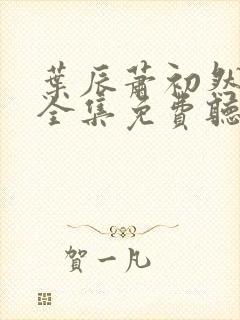 葉辰蕭初然
全集免費聽
賀一凡